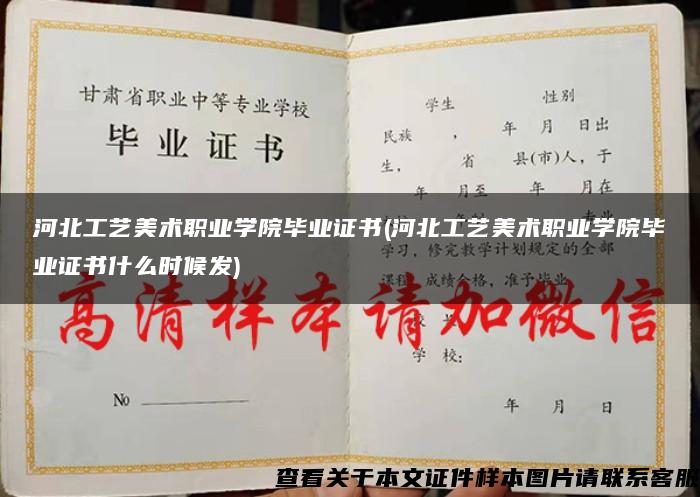 甘肃省职业中等专业学校
毕业证书
No
学生 性别
民族 , 年 月 日出
生, 省 县(市)人, 于
年 月至 年 月在
学习, 修完教学计划规定的全部
课程, 成绩合格, 准予毕业
学 校:
年 月 日
河北工艺美术职业学院毕业证书(河北工艺美术职业学院毕
业证书什么时候发)
高清样本请加微信
查看关于本文证件样本图片请联系客服